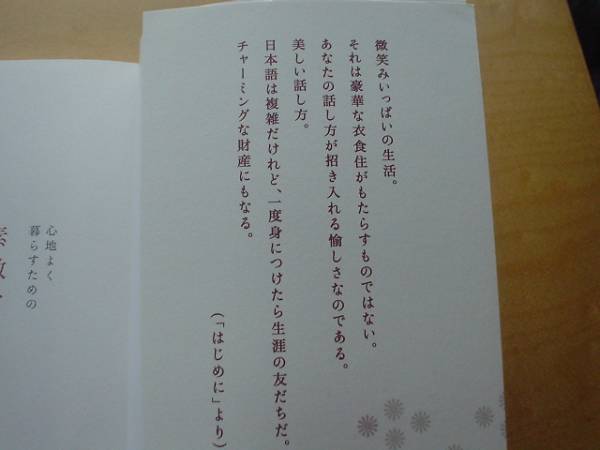 微笑みいっぱいの生活。
それは豪華な衣食住がもたらすものではない。
あなたの話し方が招き入れる愉しさなのである。
美しい話し方。
日本語は複雑だけれど、一度身につけたら生涯の友だちだ。
チャーミングな財産にもなる。
(「はじめに」より)
心地よく
暮らすための